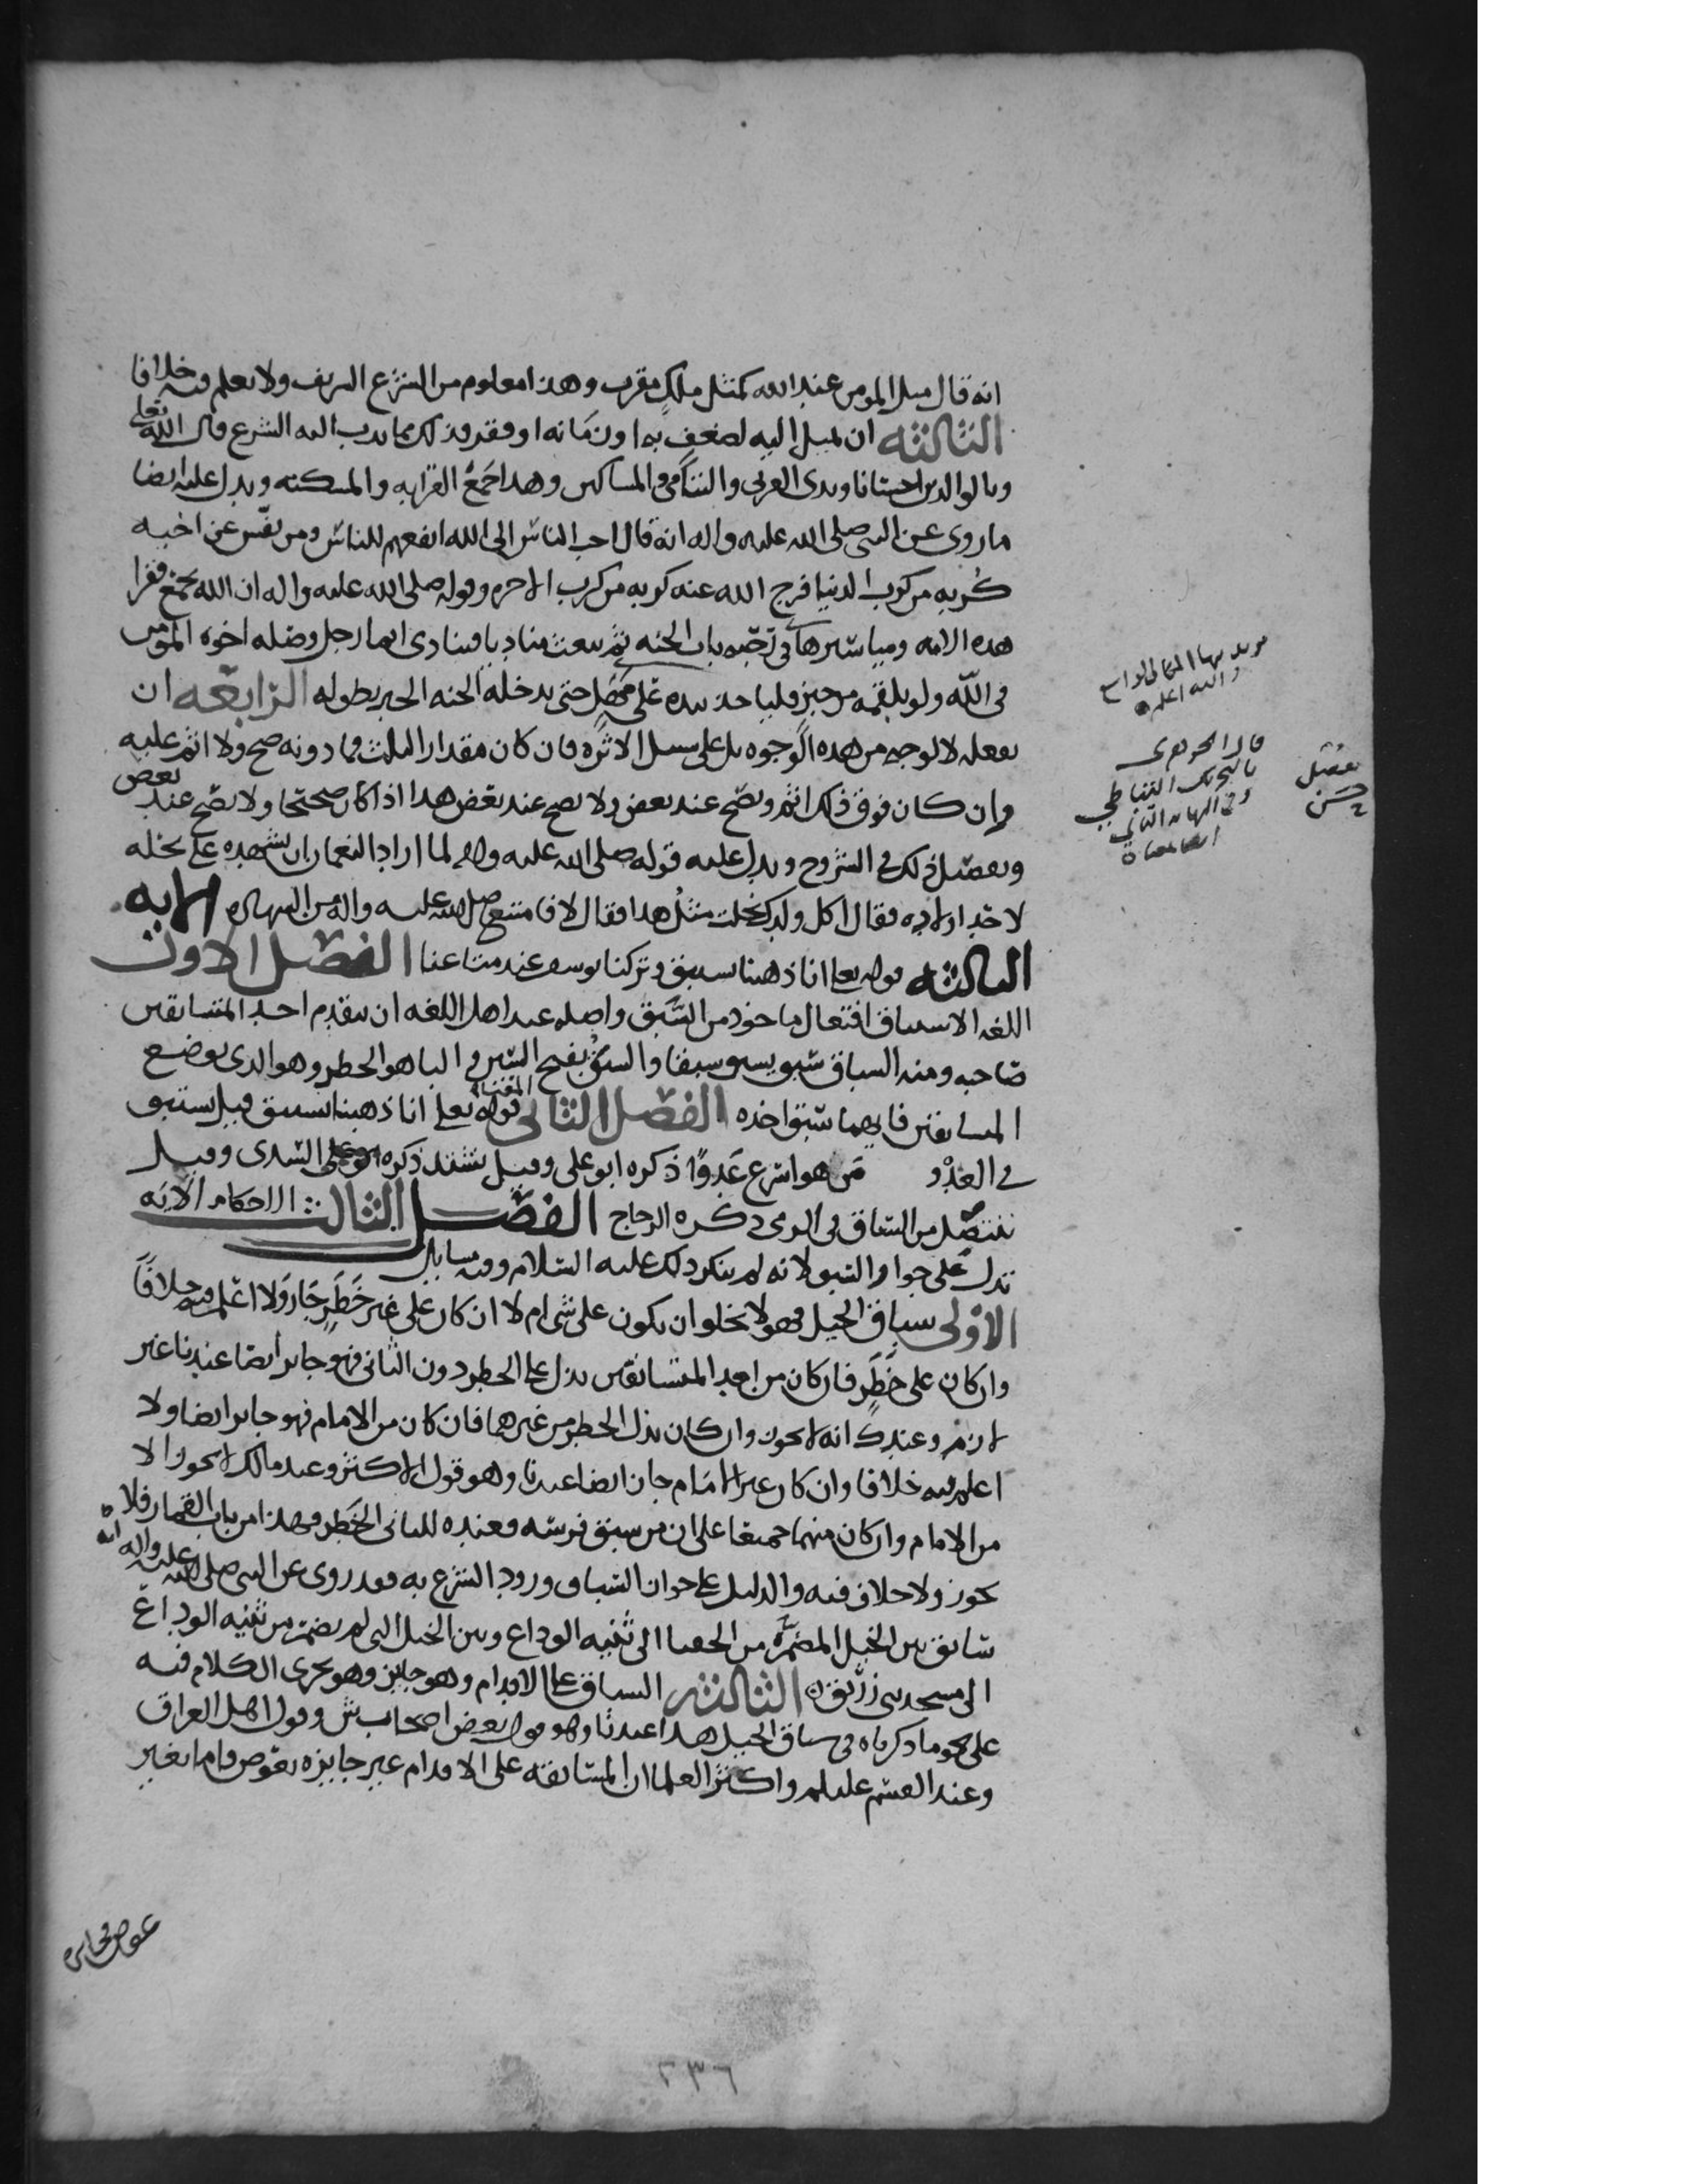 انه قال مثل المومن عند الله كمثل ملك مقرب وهذا معلوم من الشرع الشريف ولا نعلم فيه خلافا
الثالثه ان يميل اليه لضعف به او زمانه او فقر فذلك مما ندب اليه الشرع قال الله تعالى
وبالوالدين احسانا وبذي القربى واليتامى والمساكين وهذا جمع القرابه والمسكنه ويدل عليه ايضا
ما روي عن النبي صلى الله عليه واله انه قال احب الناس الى الله انفعهم للناس ومن نفس عن اخيه
كربه من كرب الدنيا فرج الله عنه كربه من كرب الاخره وقوله صلى الله عليه واله ان الله يجمع فقرا
هذه الامه ومياسيرها في رحبه باب الجنه ثم يبعث مناديا فينادي ايما رجل وصله اخوه المومن
في الله ولو بلقمه من خبز فلياخذ بيده على مهل حتى يدخله الجنه الخبر بطوله الرابعه ان
يفعله لا لوجه من هذه الوجوه بل على سبيل الاثره فان كان مقدار الثلث فما دونه صح ولا اثم عليه
وان كان فوق ذلك اثم ويصح عند بعض ولا يصح عند بعض هذا اذا كان صحيحا ولا يصح عند بعض
وتفصيل ذلك في الشروح ويدل عليه قوله صلى الله عليه واله لما اراد النعمان ان يشهده على نحله
لاحد اولاده فقال اكل ولدك نحلت مثل هذا فقال لا فامتنع صلى الله عليه واله من الشهاده الايه
الثالثه قوله تعالى انا ذهبنا نستبق وتركنا يوسف عند متاعنا الفصل الاول
اللغه الاستباق افتعال ماخوذ من السبق واصله عند اهل اللغه ان يتقدم احد المتسابقين
صاحبه ومنه السباق سبق يسبق سبقا والسبق بفتح السين والبا هو الخطر وهو الذي يوضع
المتسابقين فايهما سبق اخذه الفصل الثاني المعنى قوله تعالى انا ذهبنا نستبق قيل نستبق
في العدو من هو اسرع عدوا ذكره ابو علي وقيل نشتد ذكره السدي وقيل
ننتضل من السباق في الرمي ذكره الزجاج الفصل الثالث الاحكام الايه
تدل على جواز السبق لانه لم ينكر ذلك عليه السلام وفيه مسايل
الاولى سباق الخيل فهو لا يخلو ان يكون على شي ام لا ان كان على غير خطر جاز ولا اعلم فيه خلافا
وان كان على خطر فان كان من احد المتسابقين بذل على الخطر دون الثاني فهو جايز ايضا عندنا غير
لازم وعند ك انه لا يجوز وان كان بذل الخطر من غيرهما فان كان من الامام فهو جايز ايضا ولا
اعلم فيه خلافا وان كان غير الامام جاز ايضا عندنا وهو قول الاكثر وعند مالك لا يجوز الا
من الامام وان كان منهما جميعا على ان من سبق فرسه فعنده للثاني الخطر فهذا من باب القمار فلا
يجوز ولا خلاف فيه والدليل على جواز السباق ورود الشرع به فقد روي عن النبي صلى الله عليه واله انه
سابق بين الخيل المضمره من الحفيا الى ثنيه الوداع وبين الخيل التي لم تضمر من ثنيه الوداع
الى مسجد بني زريق الثالثه السباق على الاقدام وهو جايز وهو يجري الكلام فيه
على نحو ما ذكرناه في سباق الخيل هذا عندنا وهو قول بعض اصحاب ش وقول اهل العراق
وعند القسم عليلم واكثر العلما ان المسابقه على الاقدام غير جايزه بعوض فاما بغير
عوض فجايزه
والله اعلم
قال الجوهري
تفضل
حسن
٢٣٦